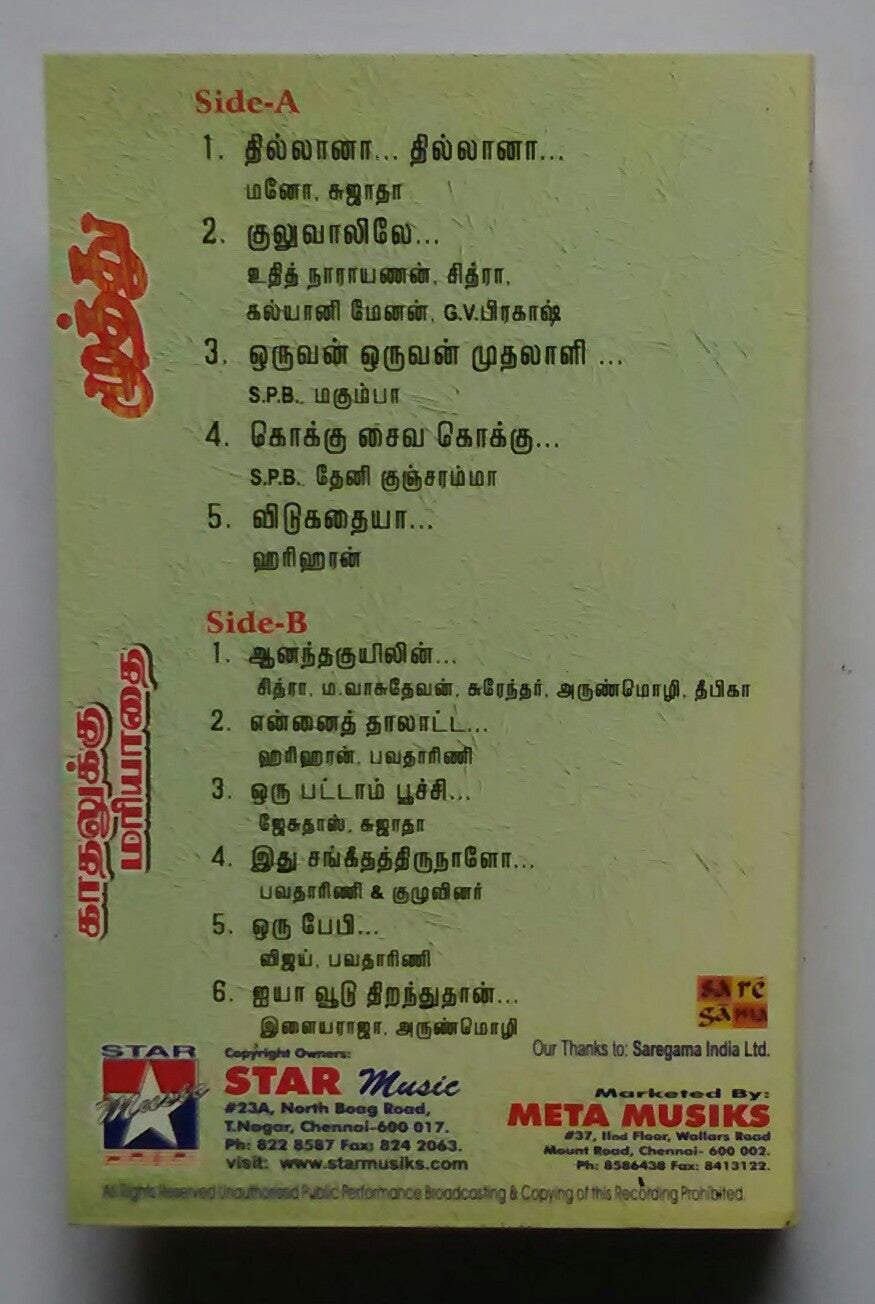 முத்து
Side-A
1. தில்லானா... தில்லானா...
மனோ, சுஜாதா
2. குலுவாலிலே...
உதித் நாராயணன், சித்ரா,
கல்யானி மேனன், G.V.பிரகாஷ்
3. ஒருவன் ஒருவன் முதலாளி ...
S.P.B., மகும்பா
4. கொக்கு சைவ கொக்கு...
S.P.B., தேனி குஞ்சரம்மா
5. விடுகதையா...
ஹரிஹரன்
காதலுக்கு
மரியாதை
Side-B
1. ஆனந்தகுயிலின்...
சித்ரா, ம.வாசுதேவன், சுரேந்தர், அருண்மொழி, தீபிகா
2. என்னைத் தாலாட்ட...
ஹரிஹரன், பவதாரிணி
3. ஒரு பட்டாம் பூச்சி...
ஜேசுதாஸ், சுஜாதா
4. இது சங்கீதத்திருநாளோ...
பவதாரிணி & குழுவினர்
5. ஒரு பேபி...
விஜய், பவதாரிணி
6. ஐயா வூடு திறந்துதான்...
இளையராஜா, அருண்மொழி
sa re
ga ma
Our Thanks to: Saregama India Ltd.
STAR
Music
Copyright Owners:
STAR Music
#23A, North Boag Road,
T.Nagar, Chennai-600 017.
Ph: 822 8587 Fax: 824 2063.
visit: www.starmusiks.com
Marketed By:
META MUSIKS
#37, IInd Floor, Wallars Road
Mount Road, Chennai- 600 002.
Ph: 8586438 Fax: 8413122.
All Rights Reserved Unauthorised Public Performance Broadcasting & Copying of this Recording Prohibited.